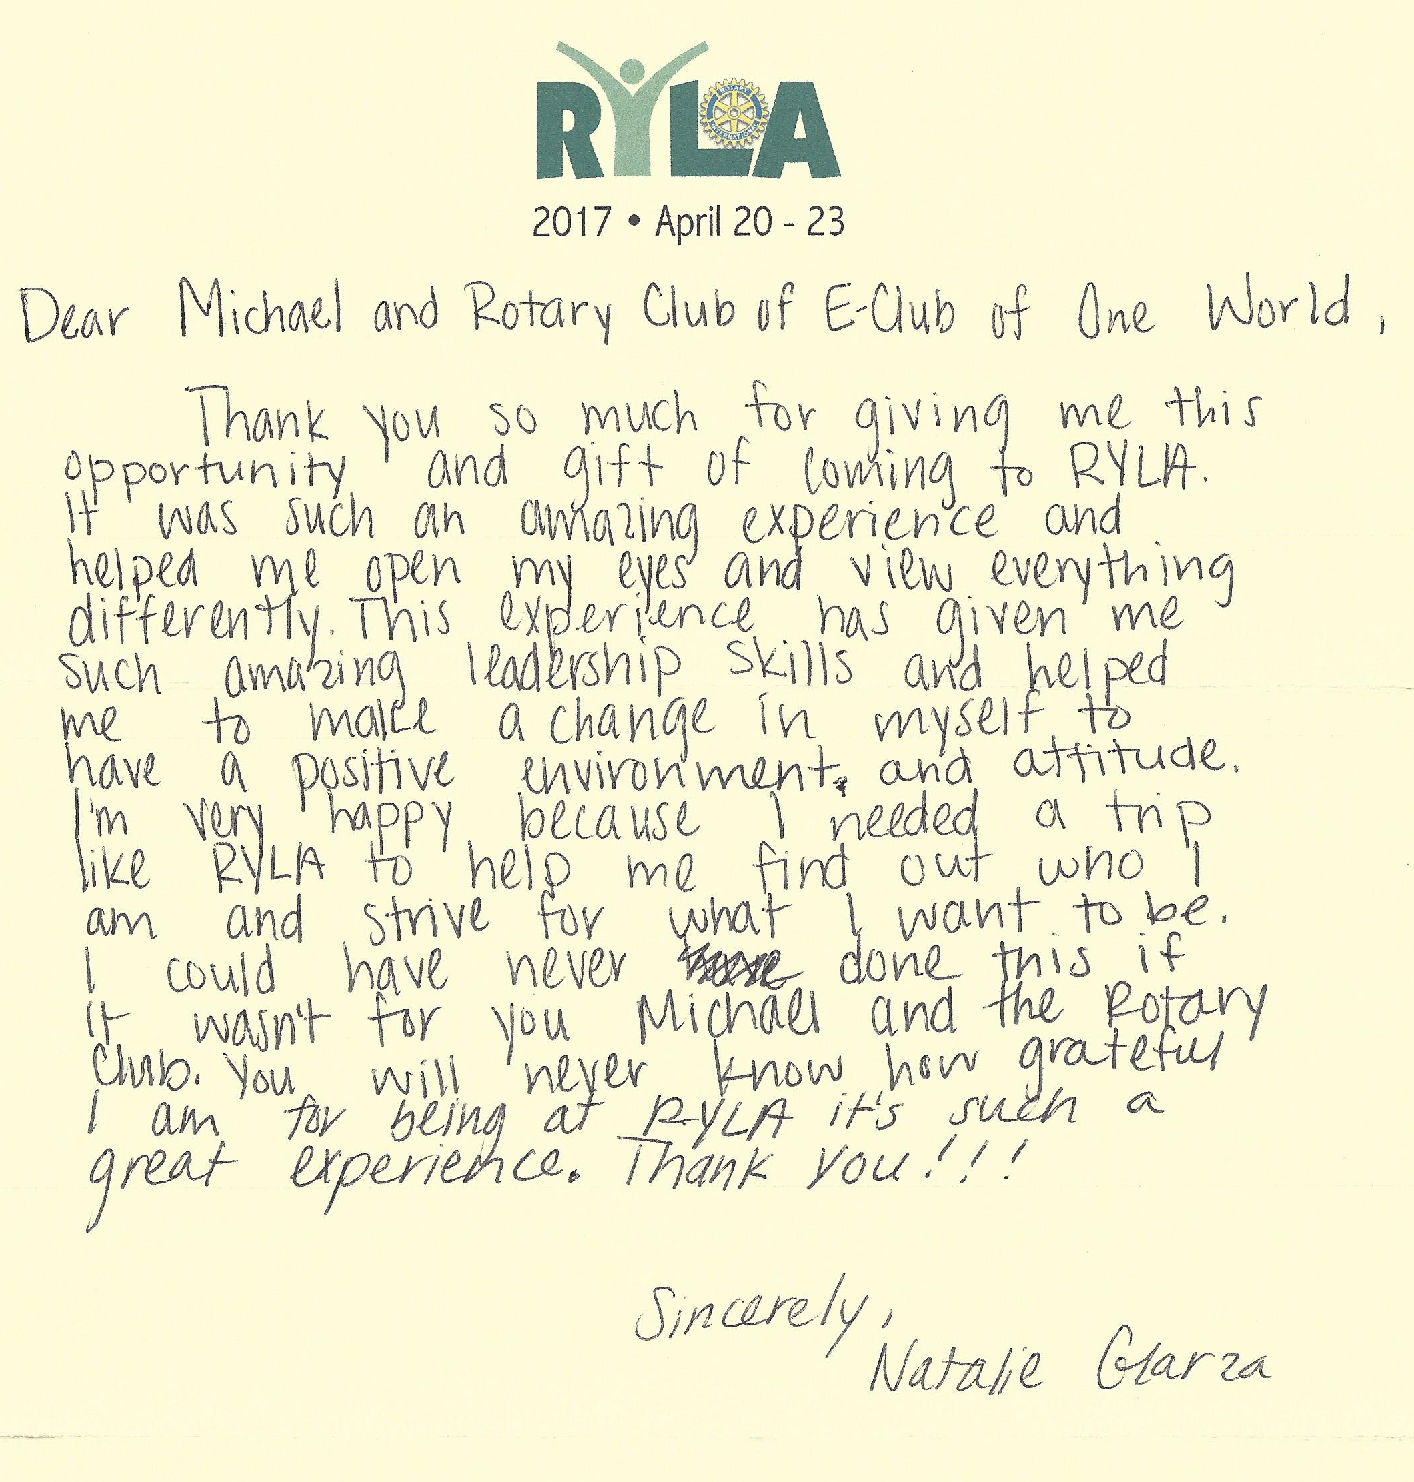 RYLA
ROTARY INTERNATIONAL
2017 • April 20 - 23
Dear Michael and Rotary Club of E-Club of One World,
Thank you so much for giving me this
opportunity and gift of coming to RYLA.
It was such an amazing experience and
helped me open my eyes and view everything
differently. This experience has given me
such amazing leadership skills and helped
me to make a change in myself to
have a positive environment, and attitude.
I'm very happy because I needed a trip
like RYLA to help me find out who I
am and strive for what I want to be.
I could have never done this if
it wasn't for you Michael and the Rotary
Club. You will never know how grateful
I am for being at RYLA it's such a
great experience. Thank you!!!
Sincerely,
Natalie Garza